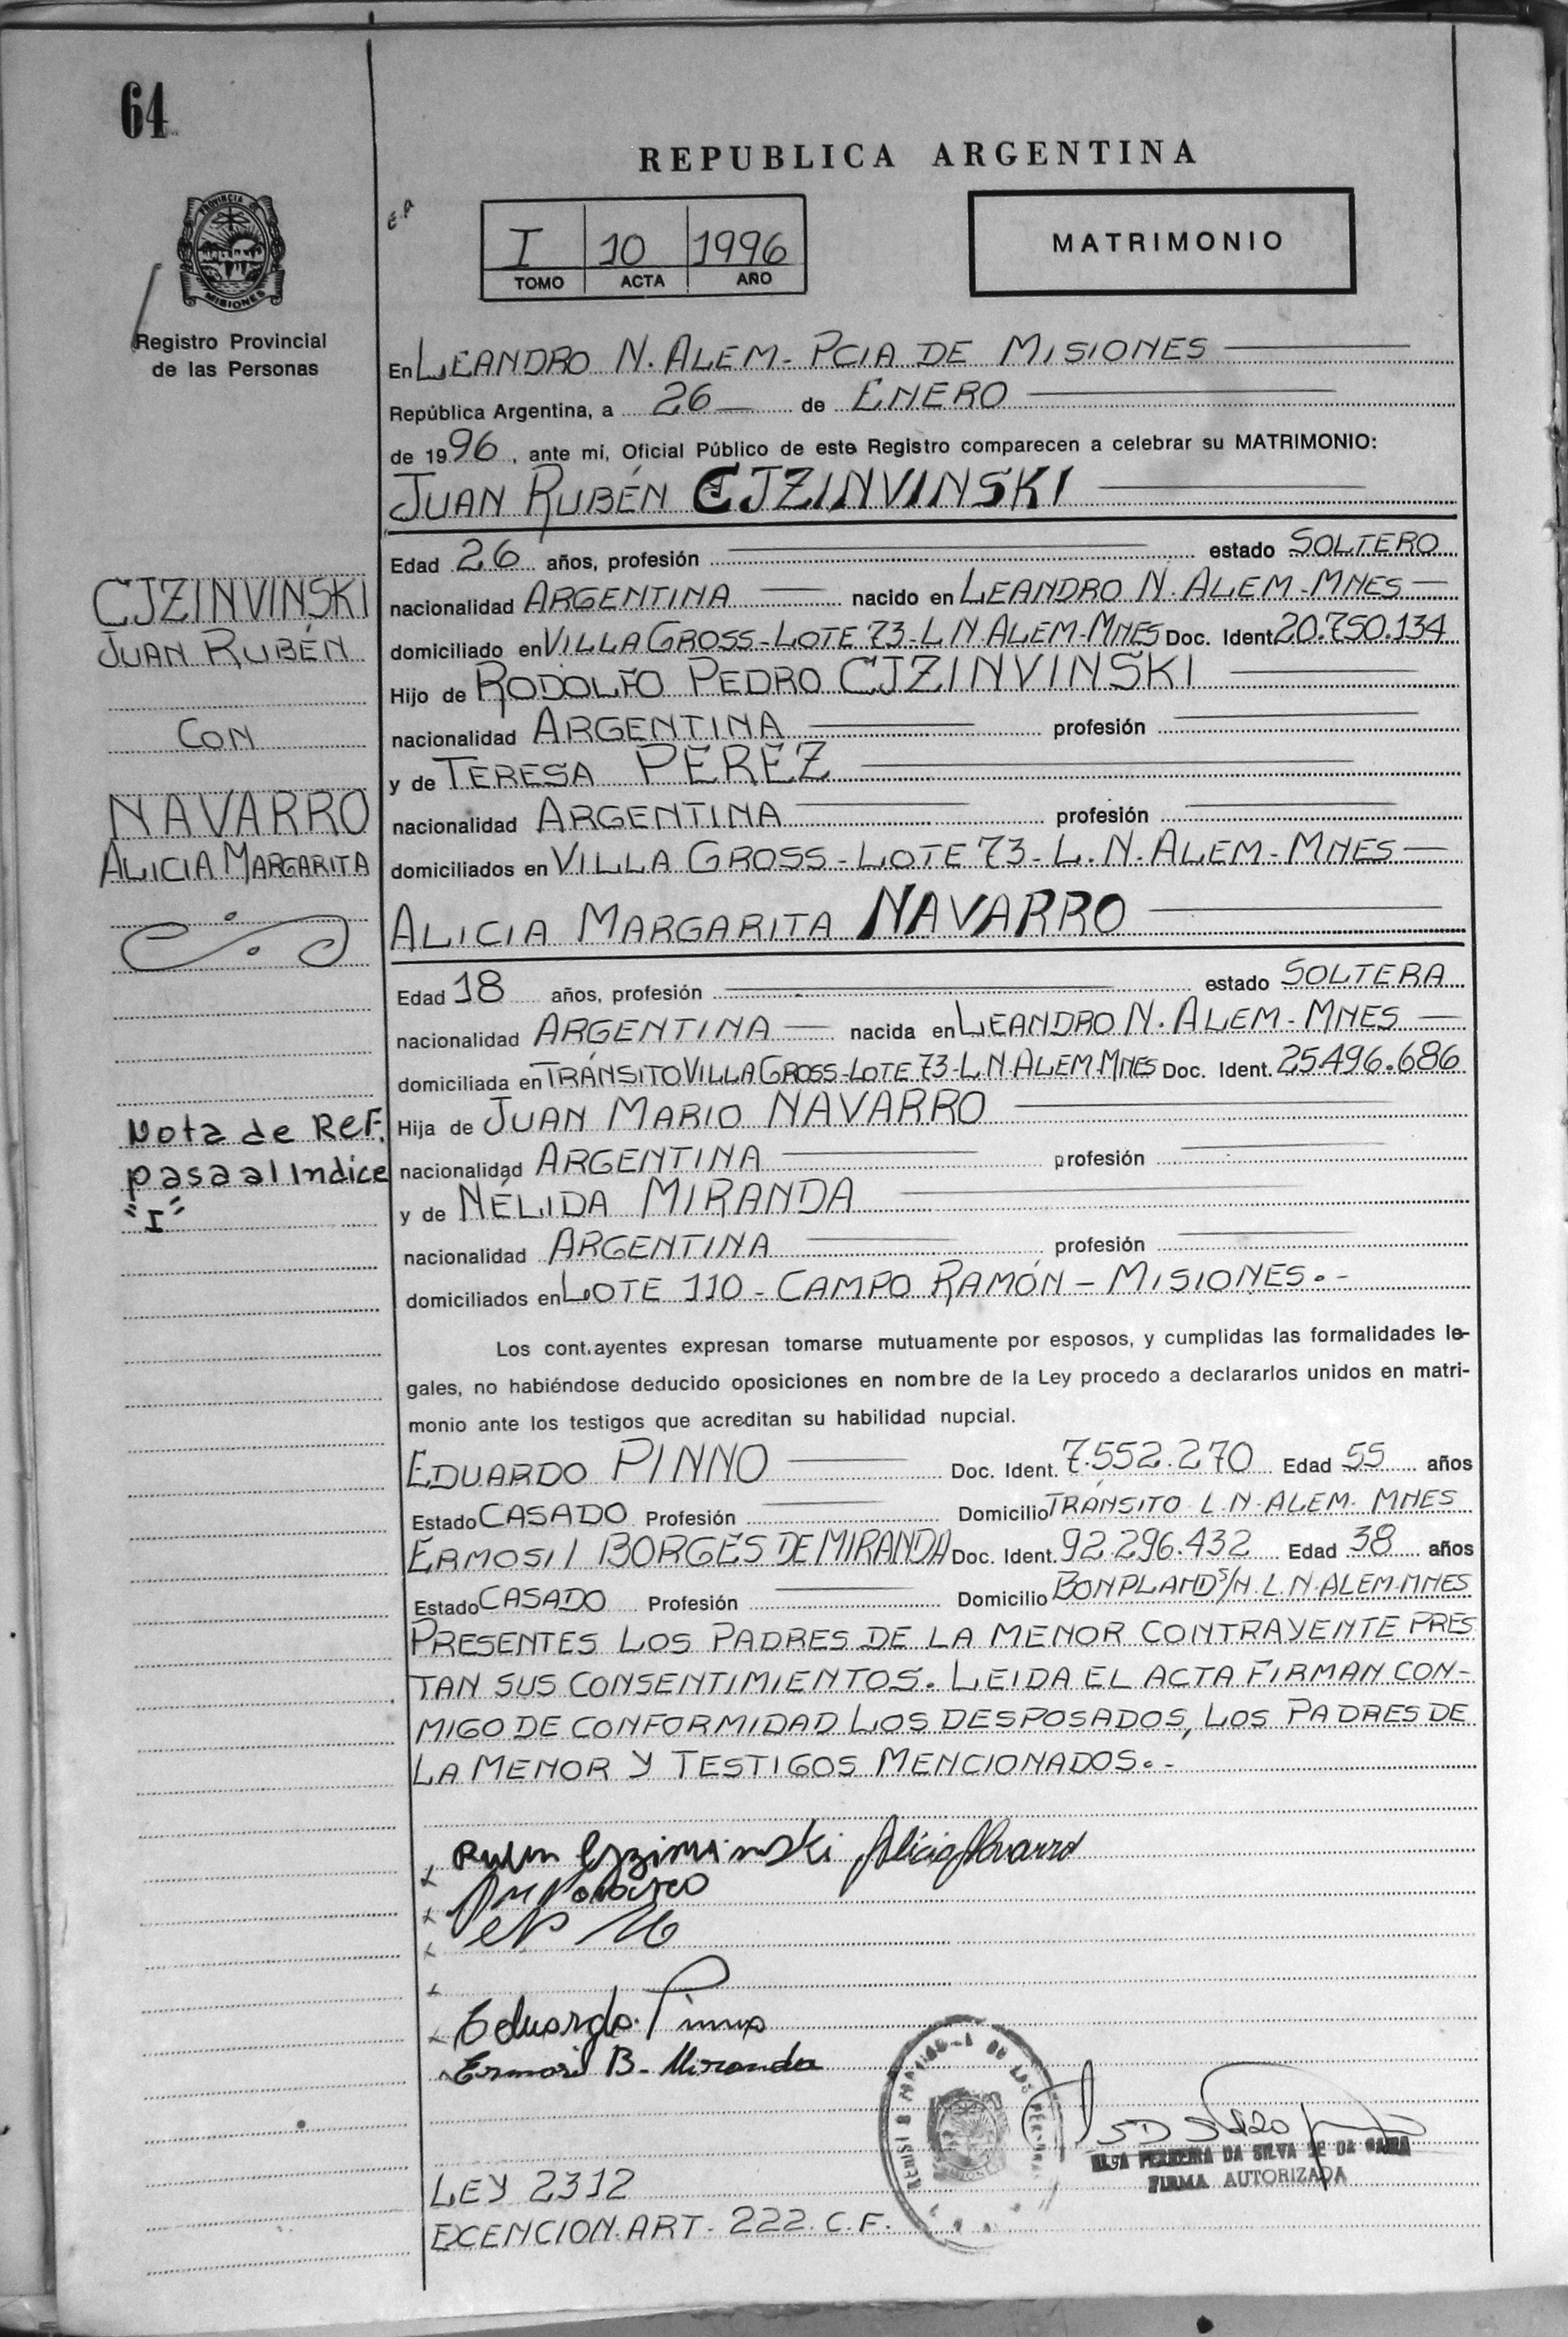 64
REPUBLICA ARGENTINA
PROVINCIA DE
MISIONES
Registro Provincial
de las Personas
I 10 1996
TOMO ACTA AÑO
MATRIMONIO
En LEANDRO N. ALEM - PCIA DE MISIONES
República Argentina, a 26 de ENERO
de 1996, ante mi, Oficial Público de este Registro comparecen a celebrar su MATRIMONIO:
JUAN RUBÉN CJZINVINSKI
Edad 26 años, profesión estado SOLTERO
nacionalidad ARGENTINA nacido en LEANDRO N. ALEM - MNES
domiciliado en VILLA GROSS - LOTE 73 - L N. ALEM - MNES Doc. Ident. 20.750.134
Hijo de RODOLFO PEDRO CJZINVINSKI
nacionalidad ARGENTINA profesión
y de TERESA PEREZ
nacionalidad ARGENTINA profesión
domiciliados en VILLA GROSS - LOTE 73 - L. N. ALEM - MNES
ALICIA MARGARITA NAVARRO
Edad 18 años, profesión estado SOLTERA
nacionalidad ARGENTINA nacida en LEANDRO N. ALEM - MNES
domiciliada en TRÁNSITO VILLA GROSS - LOTE 73 - L.N. ALEM MNES Doc. Ident. 25.496.686
Hija de JUAN MARIO NAVARRO
nacionalidad ARGENTINA profesión
y de NÉLIDA MIRANDA
nacionalidad ARGENTINA profesión
domiciliados en LOTE 110 - CAMPO RAMÓN - MISIONES. -
CJZINVINSKI
JUAN RUBÉN
CON
NAVARRO
ALICIA MARGARITA
Nota de Ref.
pasa al Indice
"I"
Los cont.ayentes expresan tomarse mutuamente por esposos, y cumplidas las formalidades le-
gales, no habiéndose deducido oposiciones en nombre de la Ley procedo a declararlos unidos en matri-
monio ante los testigos que acreditan su habilidad nupcial.
EDUARDO PINNO Doc. Ident. 7.552.270 Edad 55 años
Estado CASADO Profesión Domicilio TRÁNSITO L.N. ALEM. MNES
ERMOSI BORGES DE MIRANDA Doc. Ident. 92.296.432 Edad 38 años
Estado CASADO Profesión Domicilio BONPLAND S/N. L.N. ALEM. MNES
PRESENTES LOS PADRES DE LA MENOR CONTRAYENTE PRES
TAN SUS CONSENTIMIENTOS. LEIDA EL ACTA FIRMAN CON-
MIGO DE CONFORMIDAD LOS DESPOSADOS, LOS PADRES DE
LA MENOR Y TESTIGOS MENCIONADOS. -
Alicia Navarro
Eduardo Pinno
B. Miranda
FERREIRA DA SILVA DE DA
FIRMA AUTORIZADA
LEY 2312
EXCENCION. ART. 222. C. F.